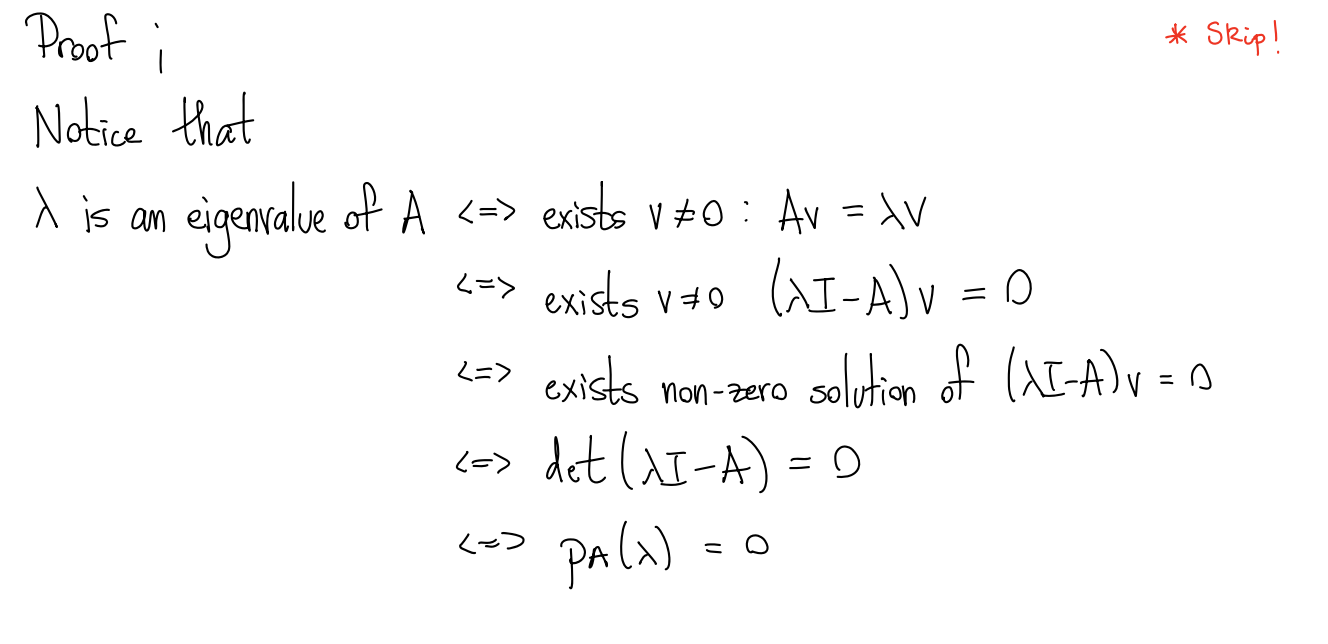 Proof ;
* Skip!
Notice that
λ is an eigenvalue of A <=> exists v≠0 : Av = λv
<=> exists v≠0 (λI-A)v = 0
<=> exists non-zero solution of (λI-A)v = 0
<=> det(λI-A) = 0
<=> pA(λ) = 0